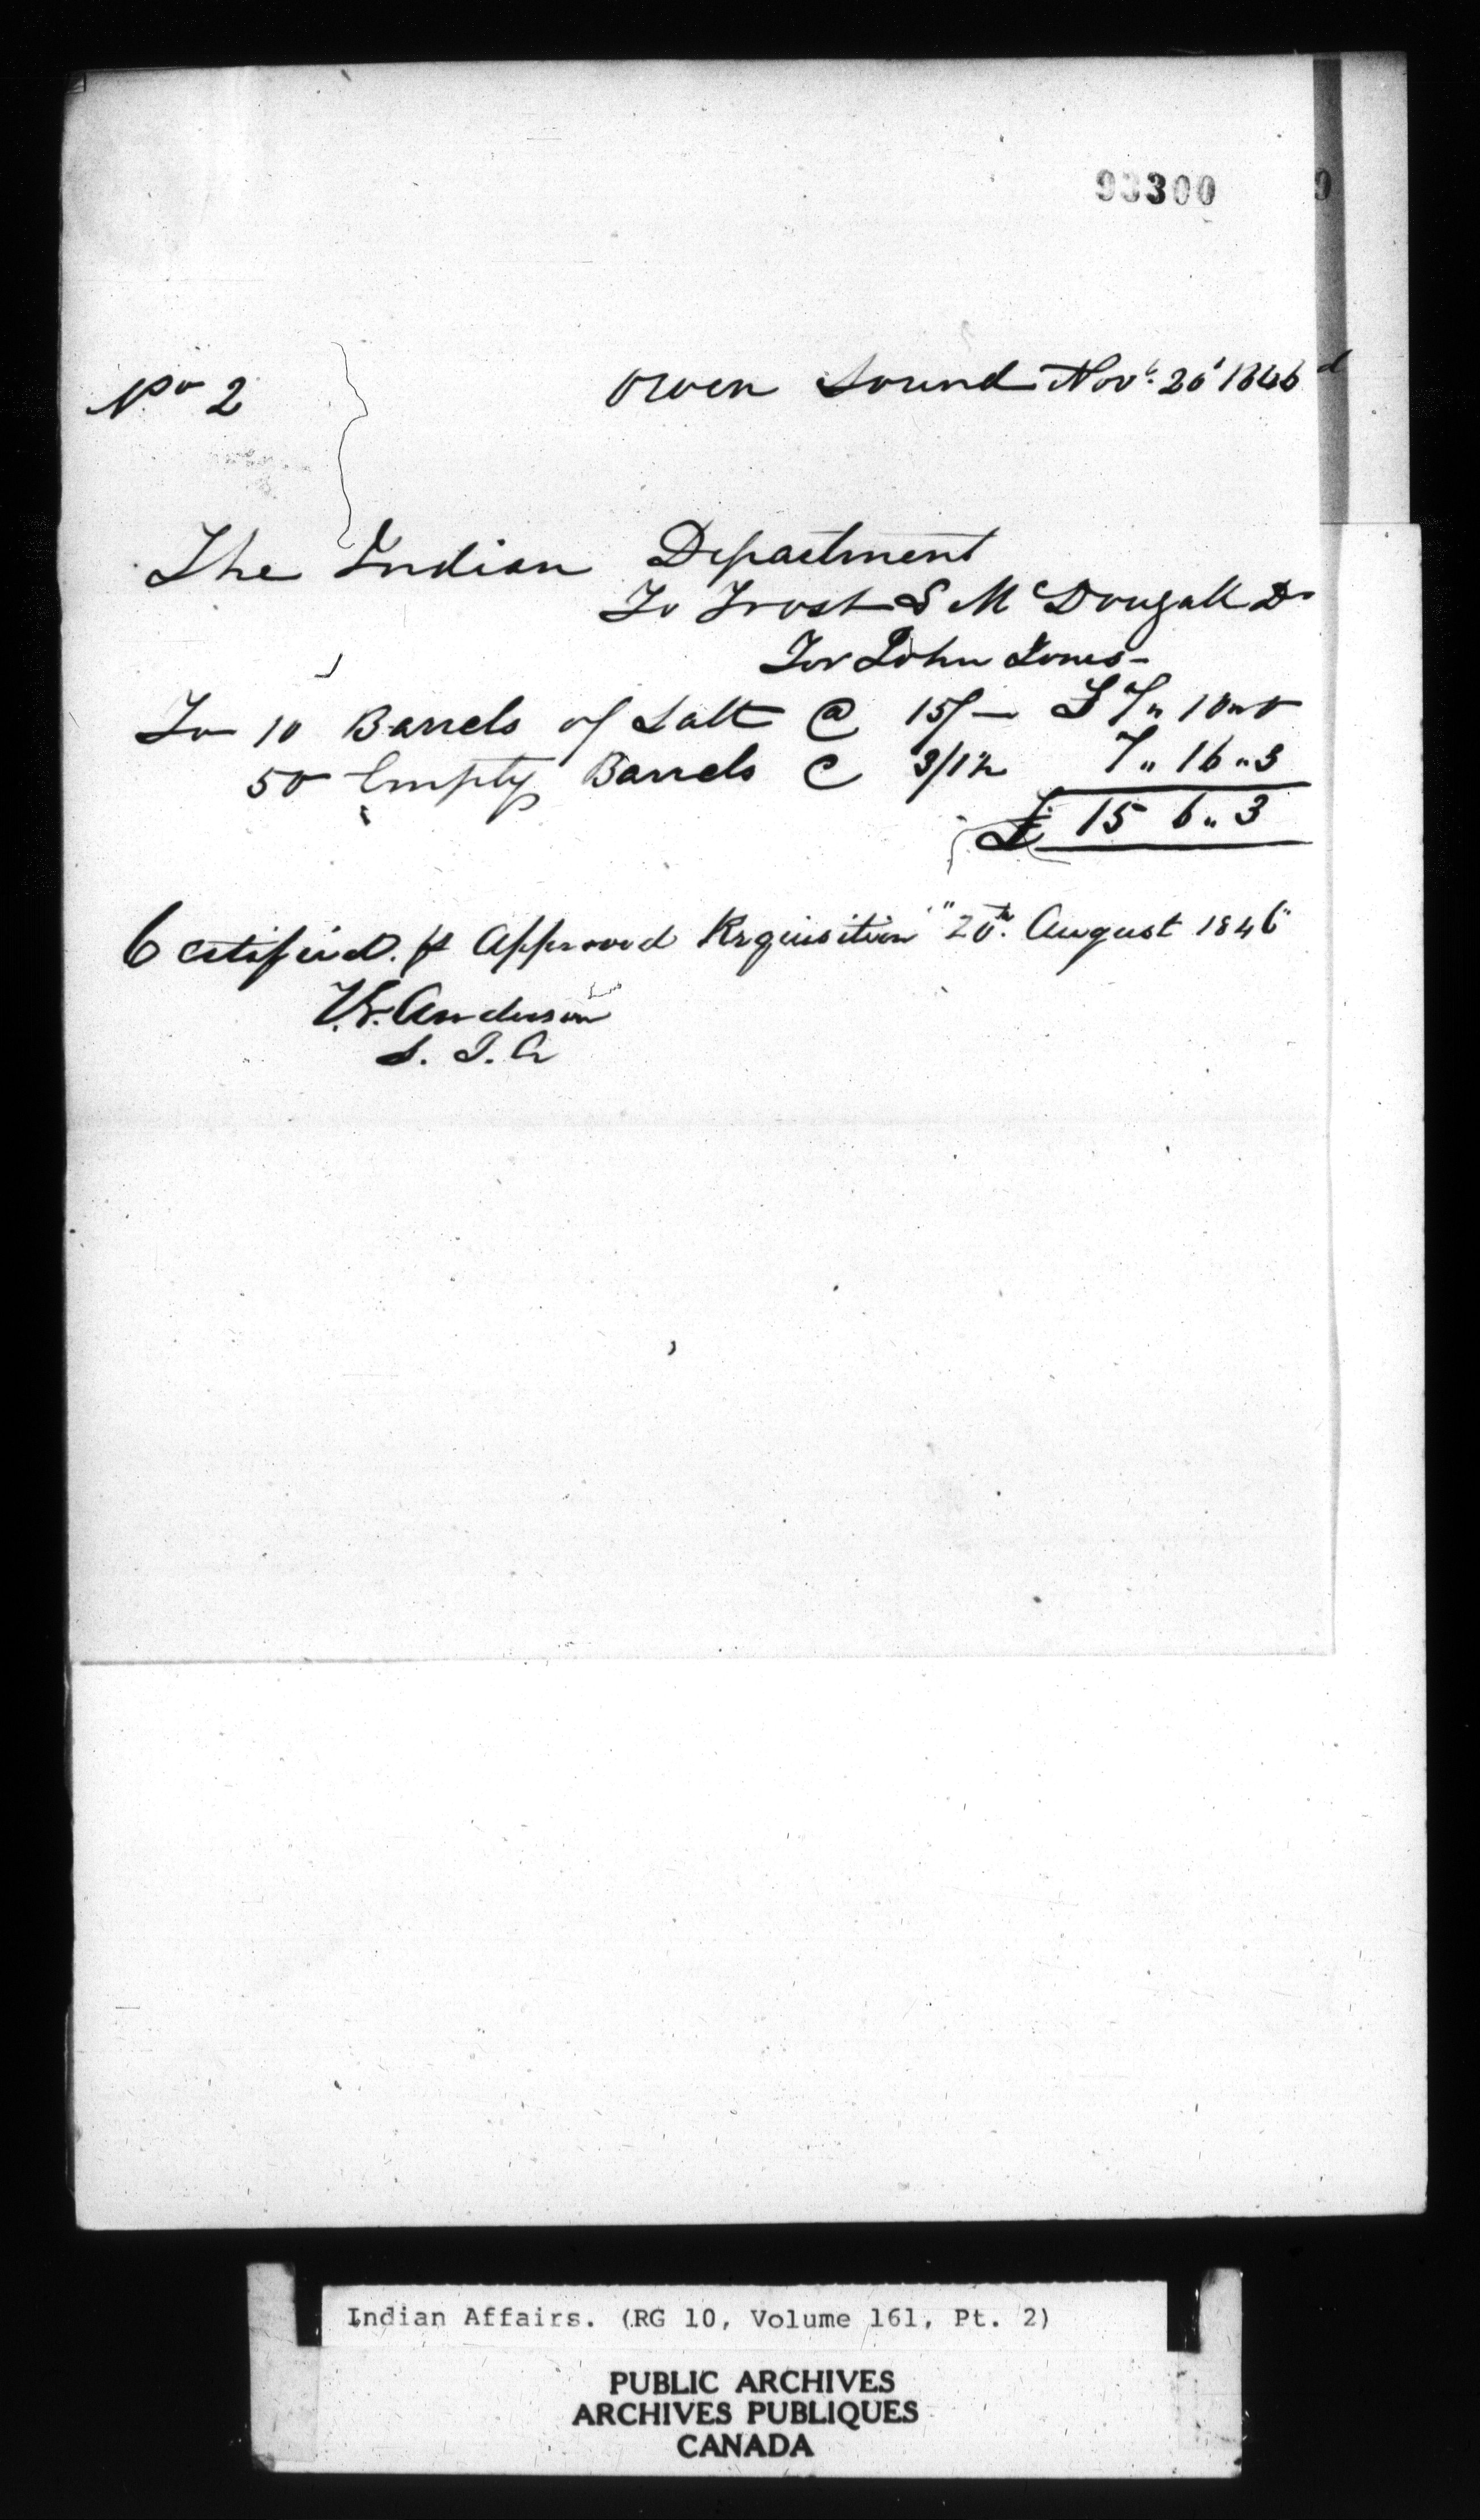 93300
No 2
Owen Sound Novr. 26 1846
The Indian Department
To Frost & McDougall Dr
For John Jones -
To 10 Barrels of Salt @ 15/- £7 „ 10 „ 0
50 Empty Barrels @ 3/1½ 7 „ 16 „ 3
£ 15 6 „ 3
Certified. pr Approved Requisition "20th. August 1846"
Anderson
S. I. A
Indian Affairs. (RG 10, Volume 161, Pt. 2)
PUBLIC ARCHIVES
ARCHIVES PUBLIQUES
CANADA